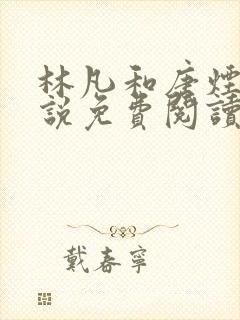 林凡和唐煙
說免費閱讀
戴春寧